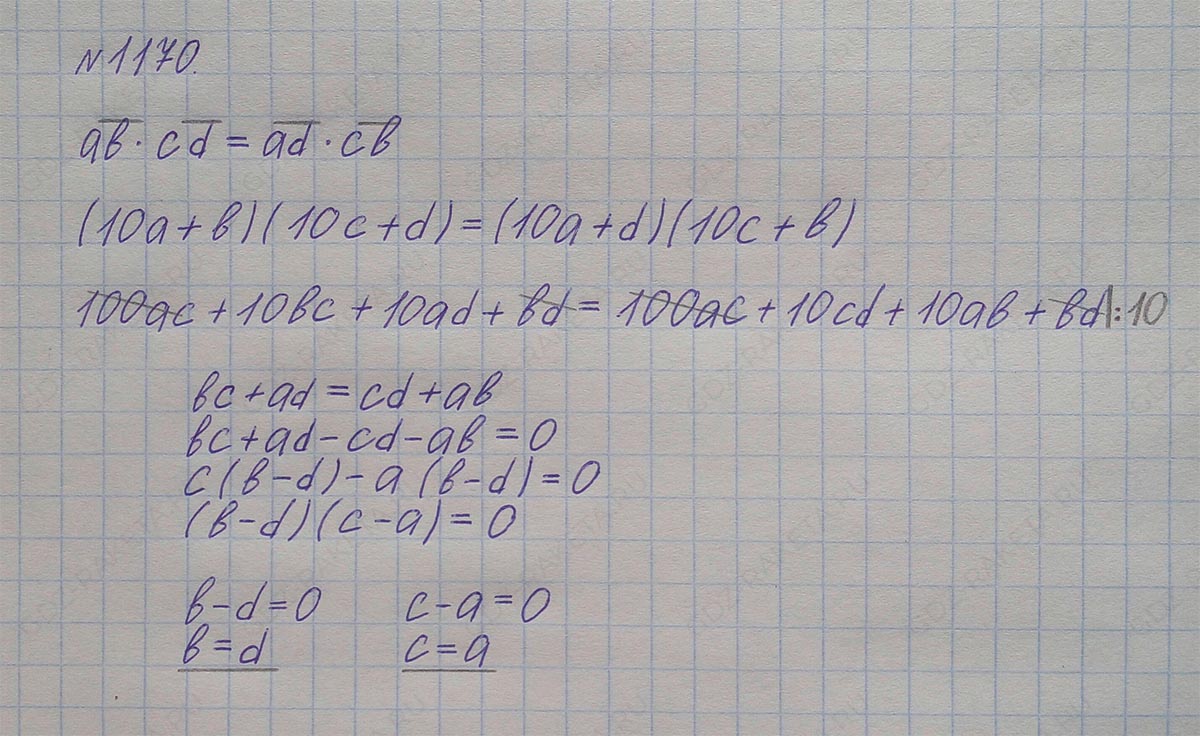 №1170.
ab · cd = ad · cb
(10a + b)(10c + d) = (10a + d)(10c + b)
100ac + 10bc + 10ad + bd = 100ac + 10cd + 10ab + bd |:10
bc + ad = cd + ab
bc + ad - cd - ab = 0
c(b - d) - a(b - d) = 0
(b - d)(c - a) = 0
b - d = 0 c - a = 0
b = d c = a